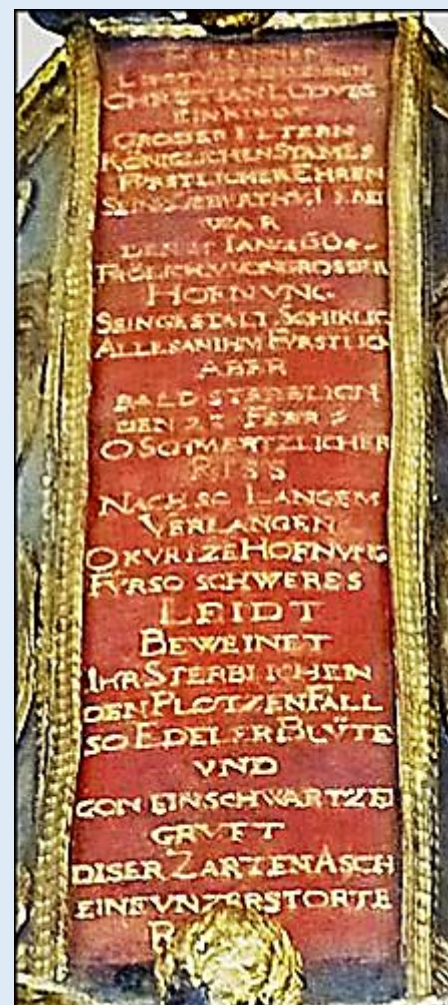 CHRISTIAN LUDWIG
EIN KINDT
GROSER ELTERN
KÖNIGLICHEN STAMES
FÜRSTLICHER EHREN
WAR
HOFNUNG
SEIN GESTALT SCHIKLIG
ALLES AN IHM FVRSTLICH
ABER
BALD STERBLICH
DEN FEBR
O SCHMERTZLICHER
RISS
NACH SO LANGEM
VERLANGEN
O KVRTZE HOFNVNG
FVR SO SCHWERES
LEIDT
BEWEINET
IHR STERBLICHEN
DEN PLOTZEN FALL
SO EDELER BLÜTE
VND
GON EIN SCHWARTZE
GRVFT
DISER ZARTEN ASCH
EINE VNZERSTORTE